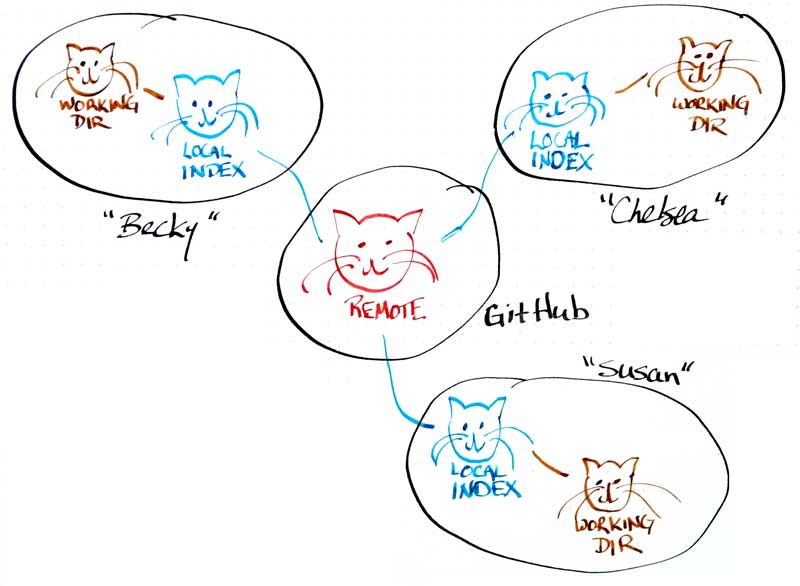 WORKING
DIR
LOCAL
INDEX
"Becky"
LOCAL
INDEX
WORKING
DIR
"Chelsea"
REMOTE
GitHub
"Susan"
LOCAL
INDEX
WORKING
DIR